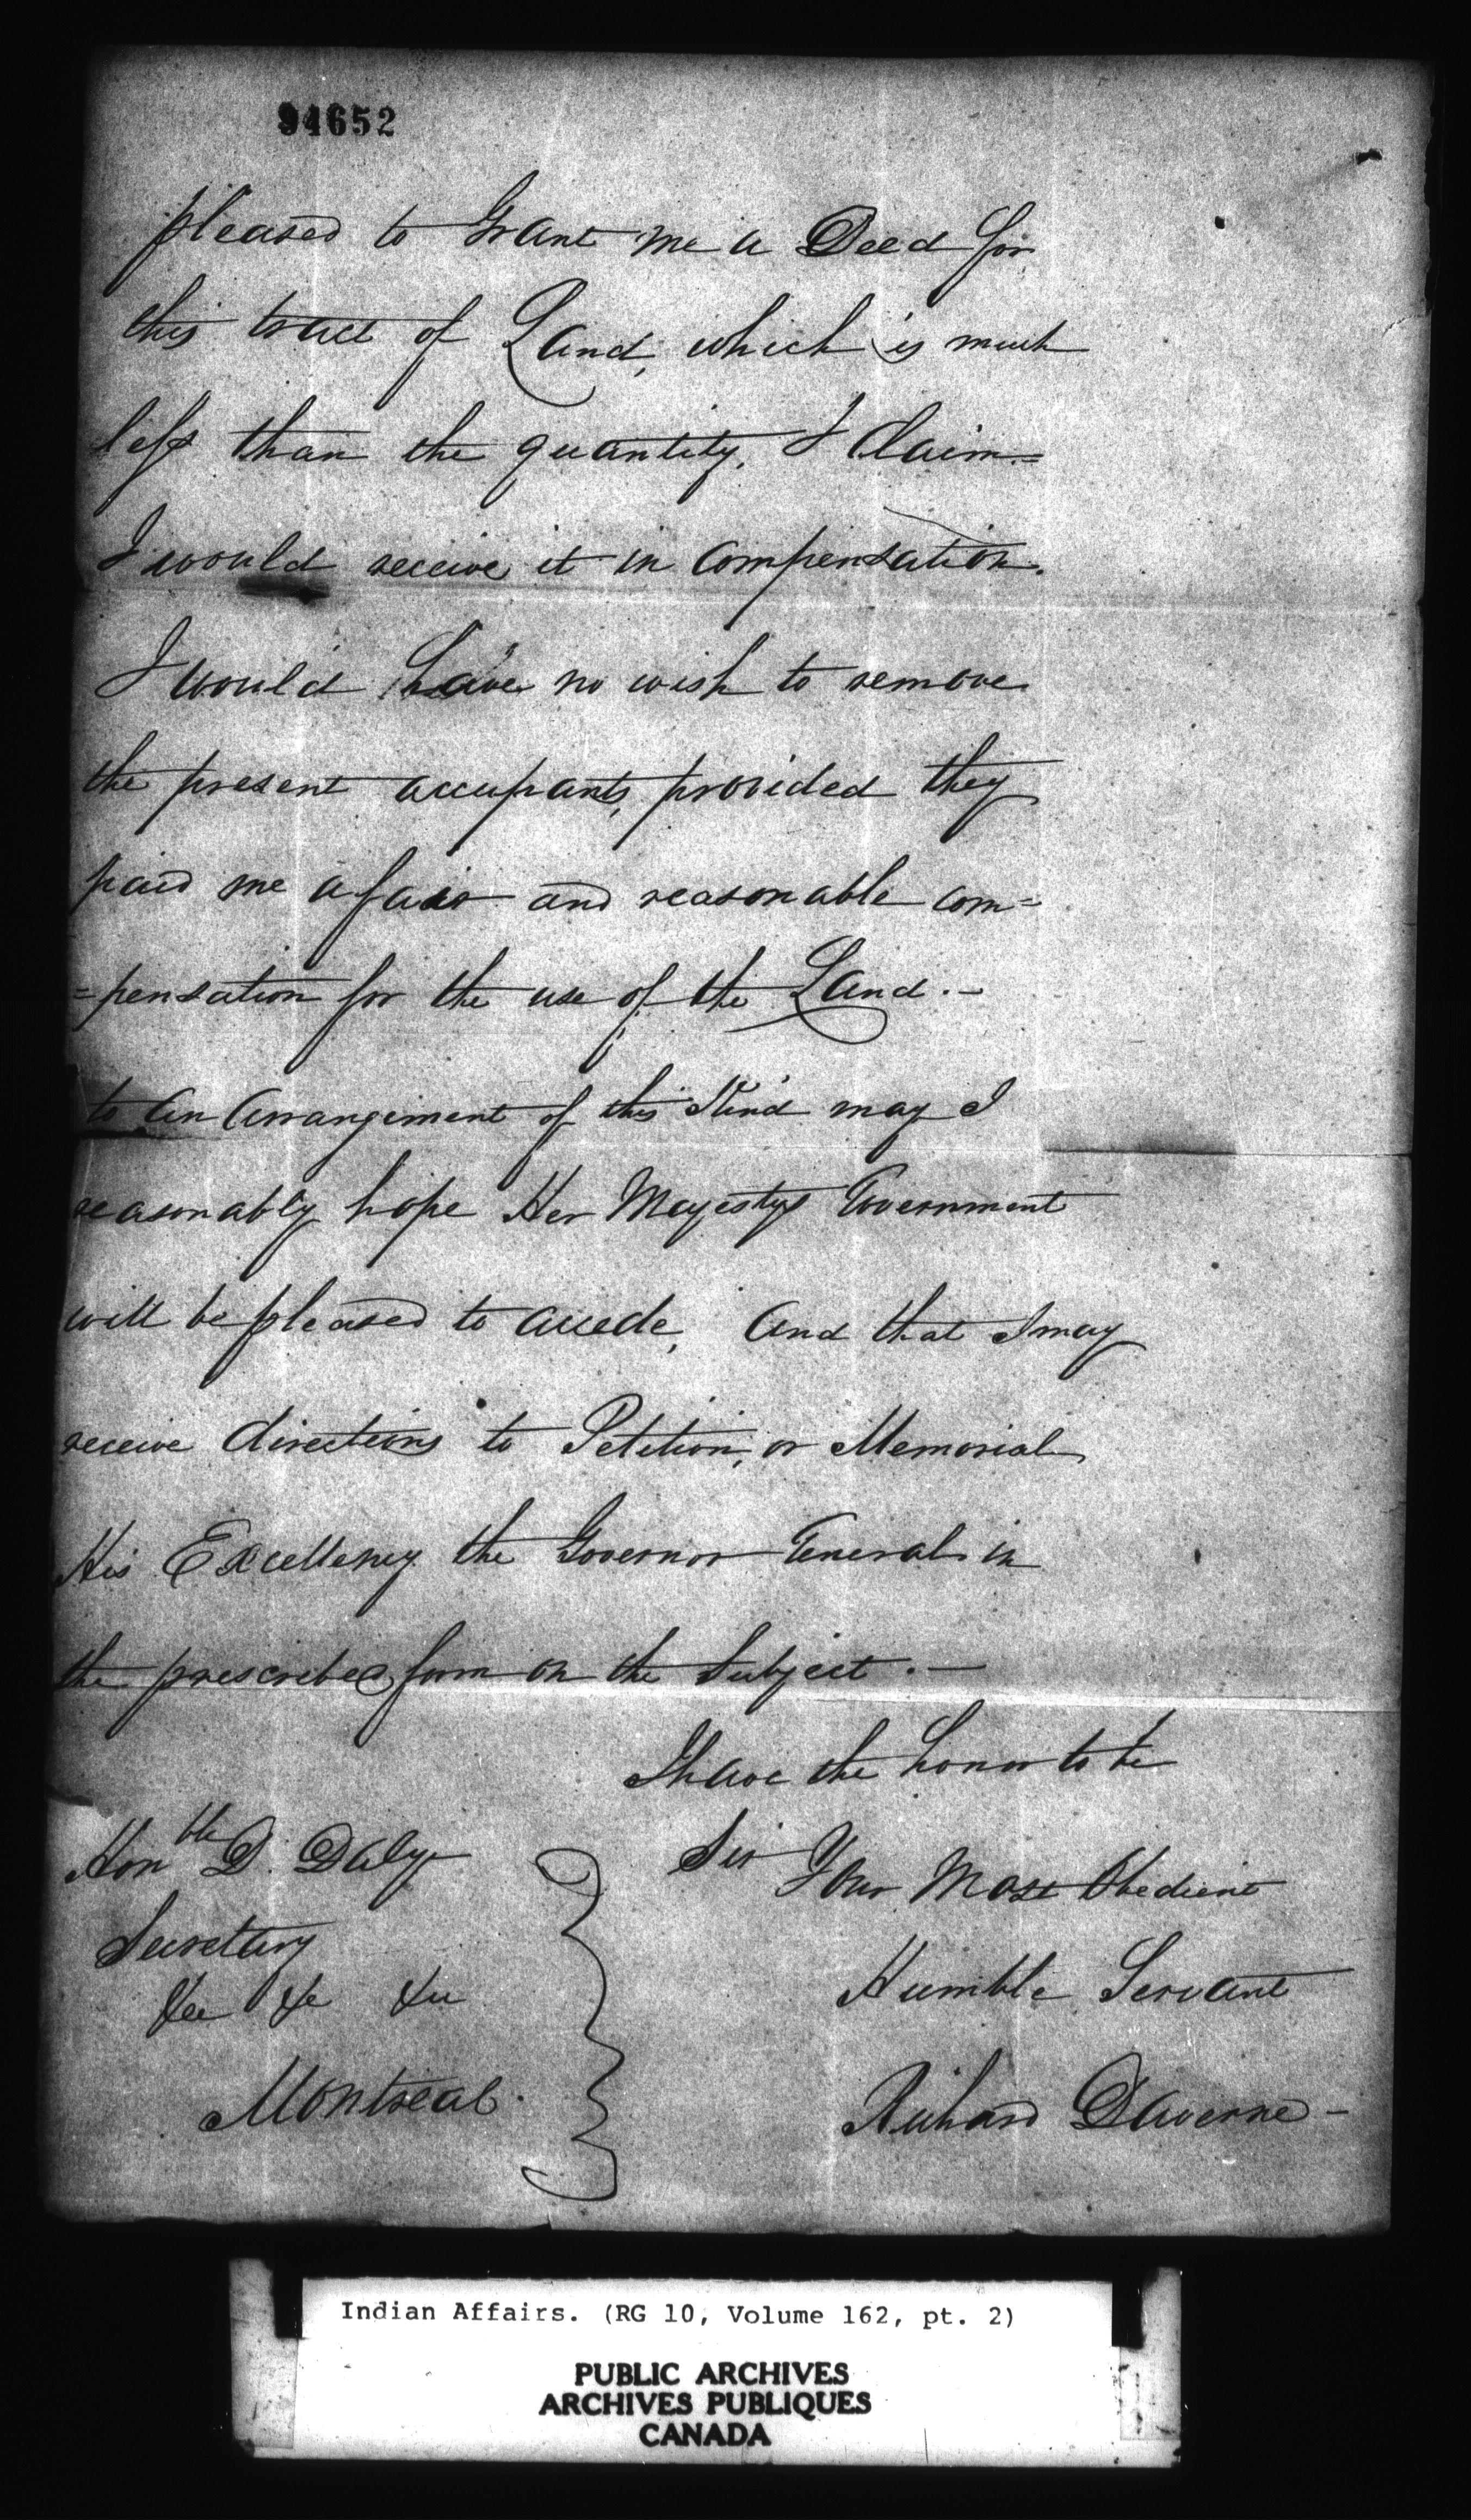 94652
pleased to Grant me a Deed for
this tract of Land, which is much
less than the quantity, I Claim.=
I would receive it in Compensation.
I would have no wish to remove
the present occupants, provided they
paid me a fair and reasonable com=
=pensation for the use of the Land.—
to an Arrangement of this Kind may I
reasonably hope Her Majestys Government
will be pleased to accede, And that I may
receive directions to Petition, or Memorial
His Excellency the Governor General in
the prescribed form on the Subject.—
I have the honor to be
Sir
Your Most Obedient
Humble Servant
Richard Daverne—
Honble D. Daly
Secretary
&c &c &c
Montreal.
Indian Affairs. (RG 10, Volume 162, pt. 2)
PUBLIC ARCHIVES
ARCHIVES PUBLIQUES
CANADA